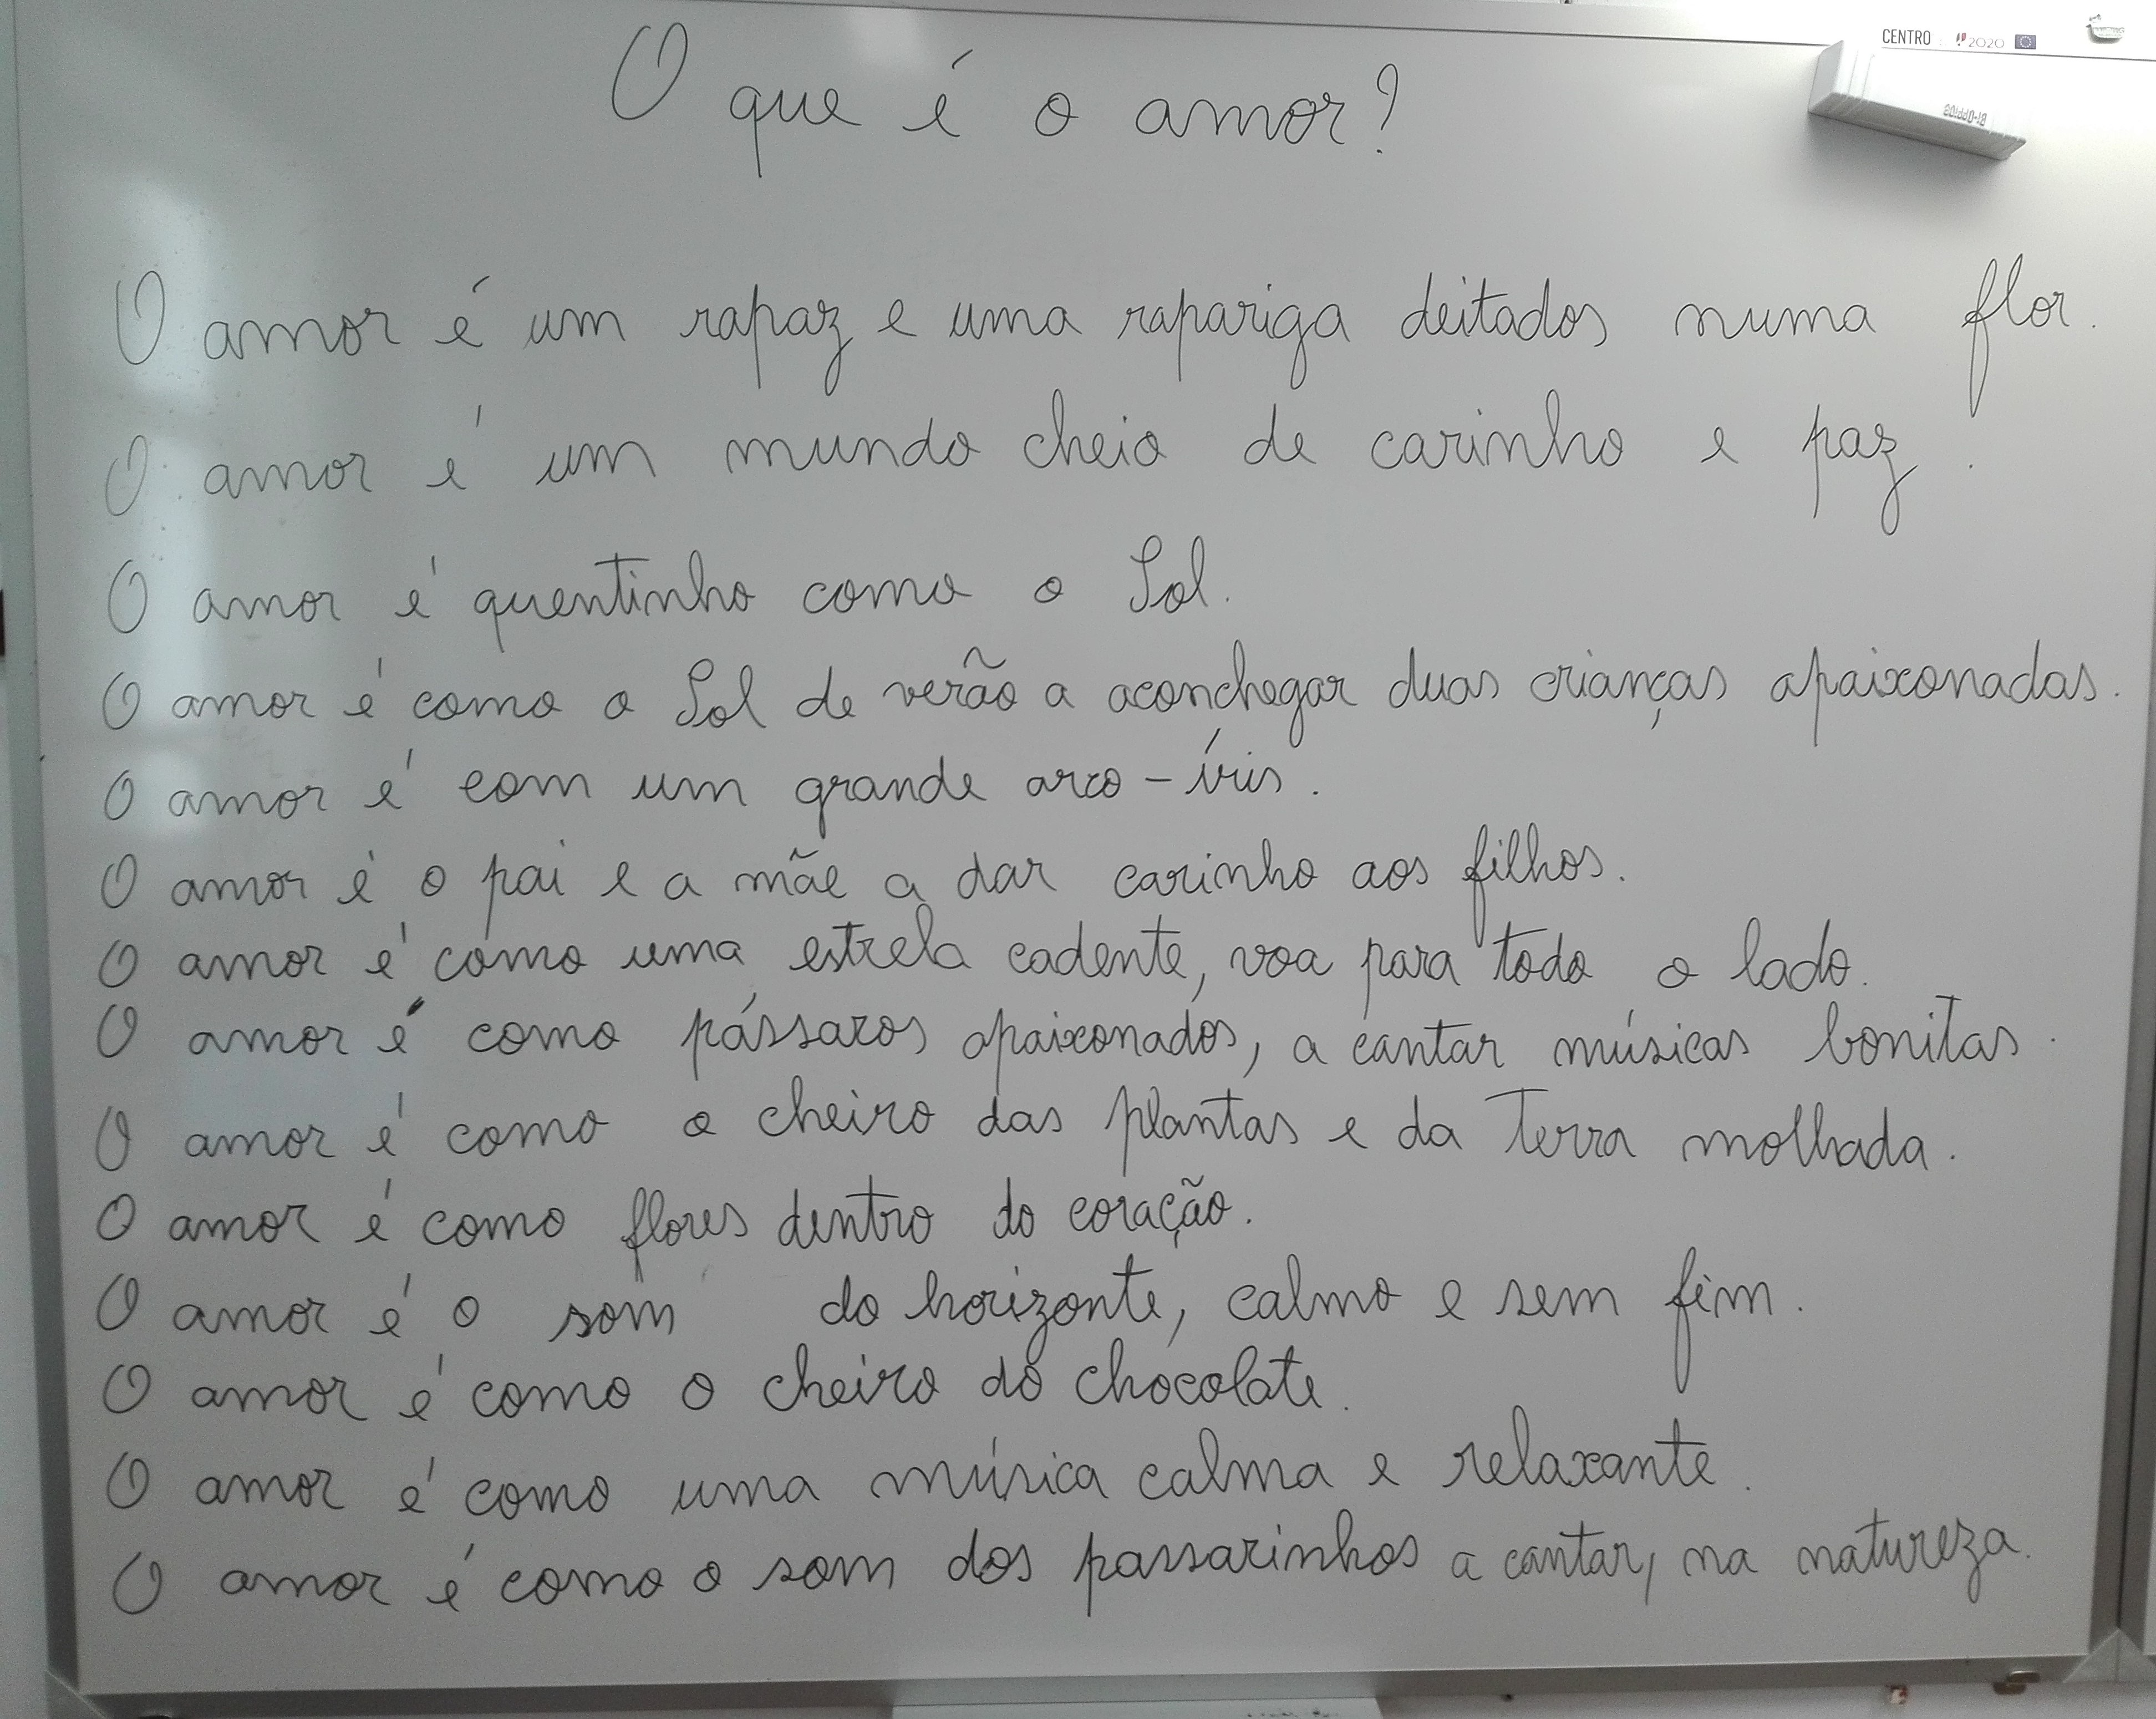 CENTRO 2020
BI-OFFICE
O que é o amor?
O amor é um rapaz e uma rapariga deitados numa flor.
O amor é um mundo cheio de carinho e paz.
O amor é quentinho como o Sol.
O amor é como o Sol de verão a aconchegar duas crianças apaixonadas.
O amor é com um grande arco-íris.
O amor é o pai e a mãe a dar carinho aos filhos.
O amor é como uma estrela cadente, voa para todo o lado.
O amor é como pássaros apaixonados, a cantar músicas bonitas.
O amor é como o cheiro das plantas e da terra molhada.
O amor é como flores dentro do coração.
O amor é o som do horizonte, calmo e sem fim.
O amor é como o cheiro do chocolate.
O amor é como uma música calma e relaxante.
O amor é como o som dos passarinhos a cantar, na natureza.